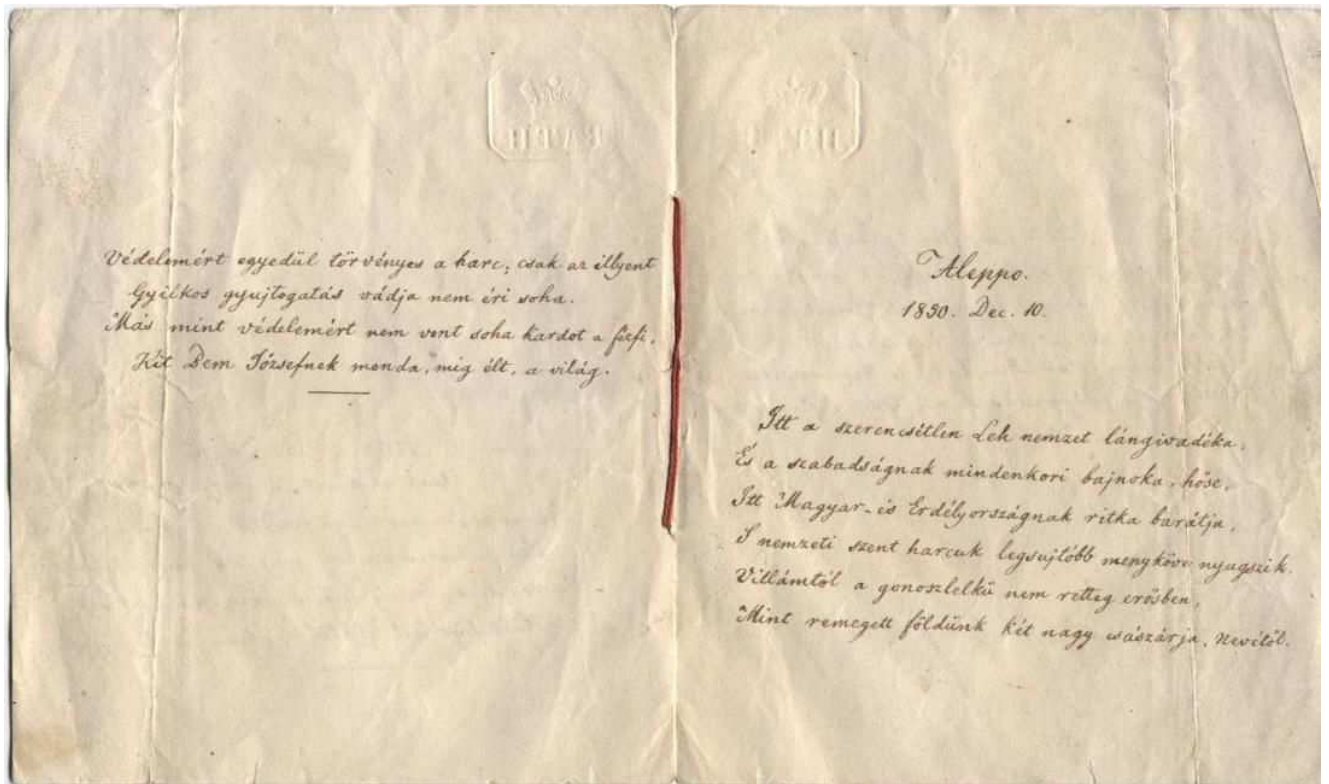 BATH
Védelemért egyedül törvényes a harc, csak az illyent
Gyilkos gyujtogatás vádja nem éri soha.
Más mint védelemért nem vont soha kardot a férfi,
Kit Bem Józsefnek monda, mig élt, a világ.
Aleppo.
1850. Dec. 10.
Itt a szerencsétlen Leh nemzet lángivadéka,
És a szabadságnak mindenkori bajnoka, hőse,
Itt Magyar- és Erdélyországnak ritka barátja,
S nemzeti szent harcuk legsujtóbb menyköve nyugszik.
Villámtól a gonoszlelkü nem retteg erősben,
Mint remegett földünk két nagy császárja, nevétől.